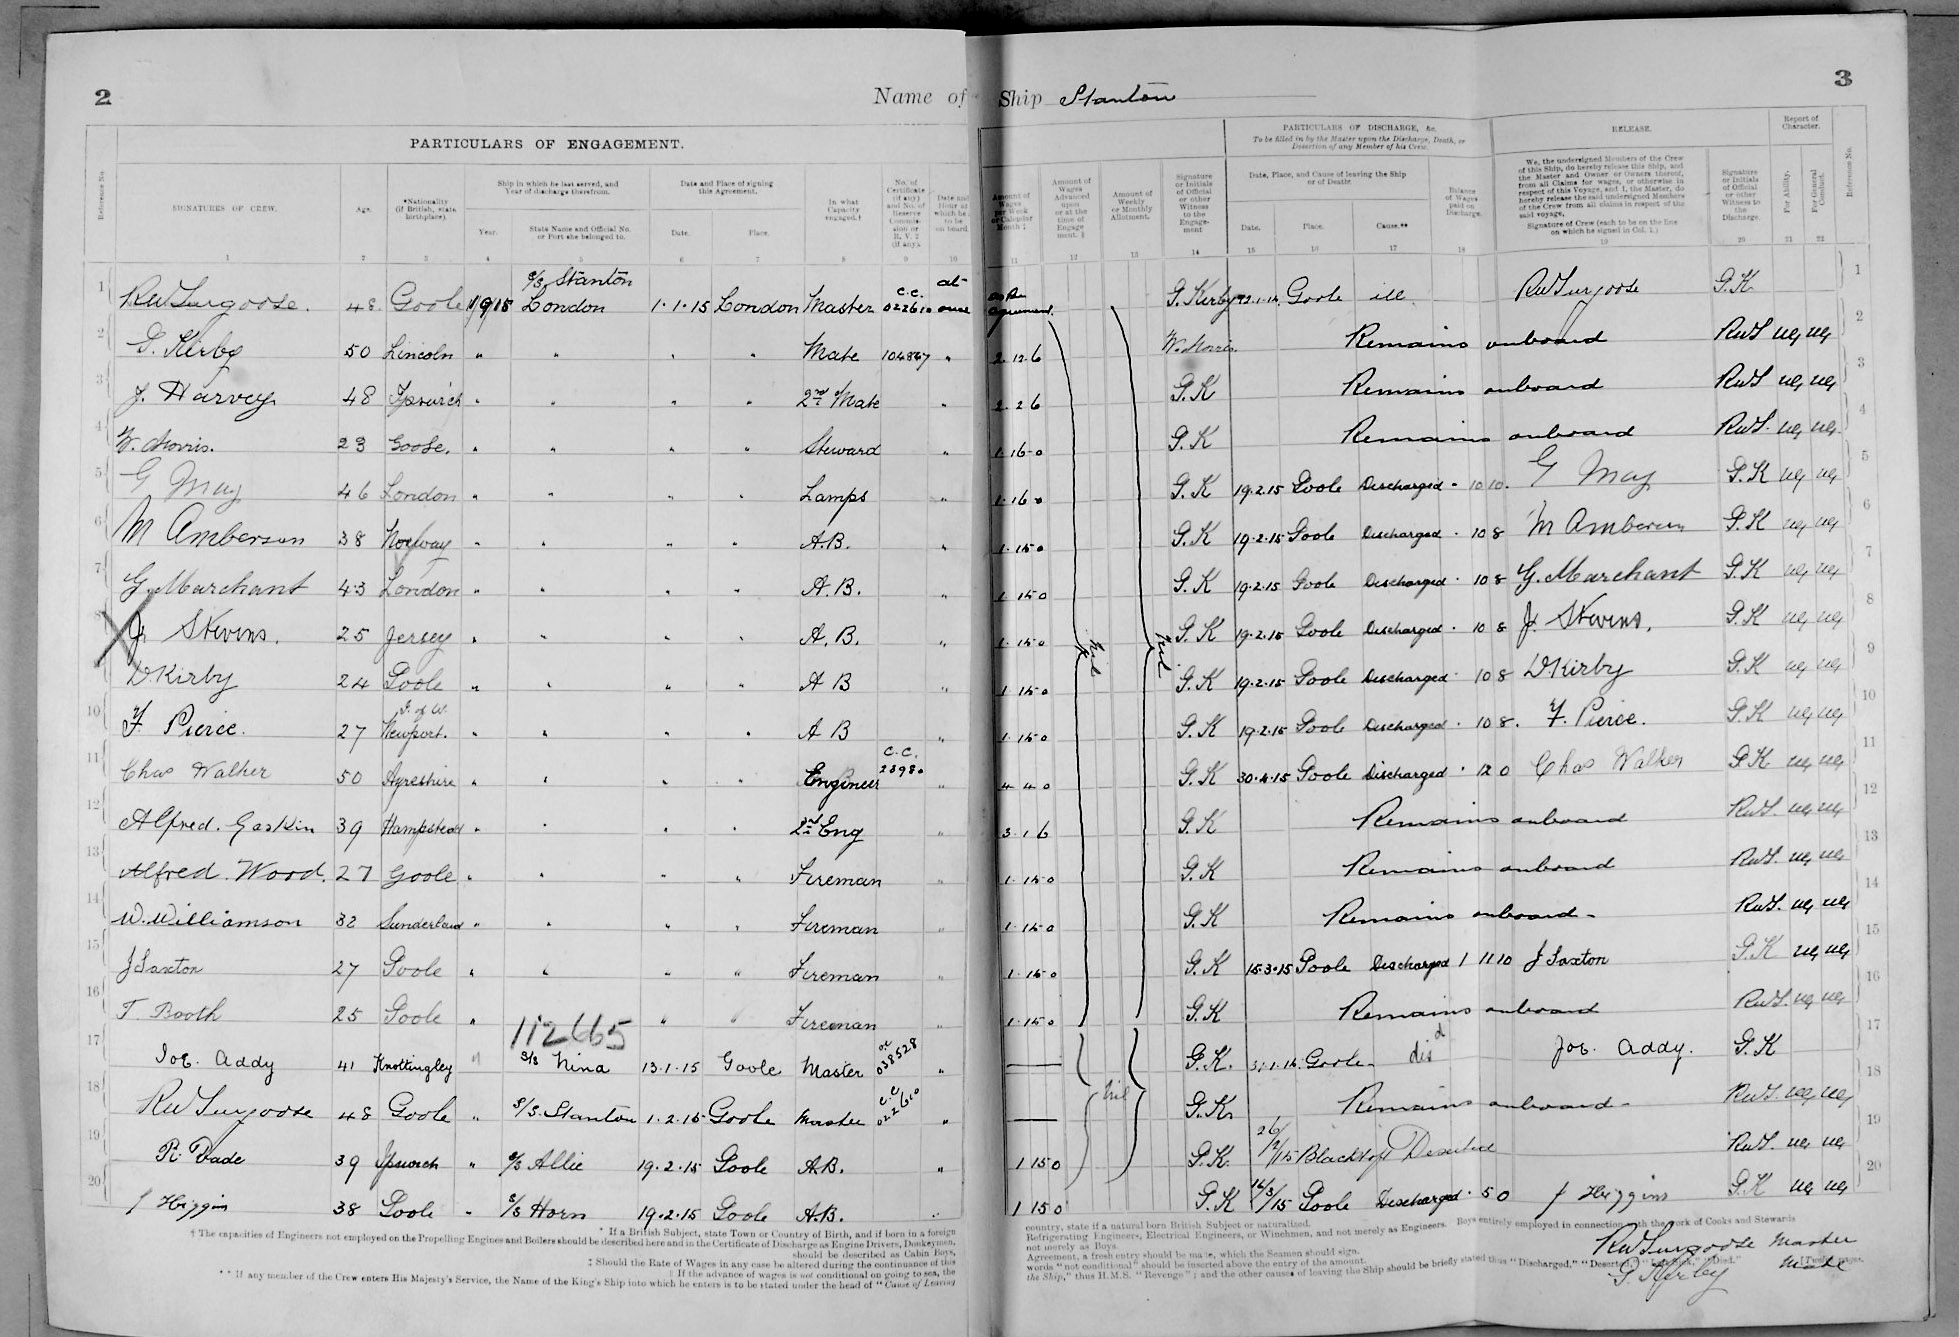 2
Name of Ship Stanton
3
PARTICULARS OF ENGAGEMENT.
PARTICULARS OF DISCHARGE, &c.
To be filled in by the Master upon the Discharge, Death, or Desertion of any Member of his Crew.
RELEASE.
Report of Character.
Reference No.
SIGNATURES OF CREW.
Age.
*Nationality (if British, state birthplace).
Ship in which he last served, and Year of discharge therefrom.
Year.
State Name and Official No. or Port she belonged to.
Date and Place of signing this Agreement.
Date.
Place.
In what Capacity engaged.†
No. of Certificate (if any) and No. of Reserve Commission or R.V.2 (if any).
Date and Hour at which he is to be on board.
Amount of Wages per Week or Calendar Month ‡
Amount of Wages Advanced upon or at the time of Engagement. ‖
Amount of Weekly or Monthly Allotment.
Signature or Initials of Official or other Witness to the Engagement
Date, Place, and Cause of leaving the Ship or of Death.
Date.
Place.
Cause.**
Balance of Wages paid on Discharge.
We, the undersigned Members of the Crew of this Ship, do hereby release this Ship, and the Master and Owner or Owners thereof, from all Claims for wages, or otherwise in respect of this Voyage, and I, the Master, do hereby release the said undersigned Members of the Crew from all claims in respect of the said voyage.
Signature of Crew (each to be on the line on which he signed in Col. 1.)
Signature or Initials of Official or other Witness to the Discharge.
For Ability.
For General Conduct.
Reference No.
1 2 3 4 5 6 7 8 9 10 11 12 13 14 15 16 17 18 19 20 21 22
1 RW Surgoose. 48 Goole 1915 s/s Stanton London 1.1.15 London Master c.c. 022610 at once as per agreement G. Kerby Goole ill RW Surgoose G.K 1
2 G. Kerby 50 Lincoln " " " " Mate 104867 " 2.12.6 W. Morris. Remains onboard RWS VG VG 2
3 J. Harvey 48 Ipswich " " " " 2nd Mate " 2.2.6 G.K Remains onboard RWS VG VG 3
4 W. Morris. 23 Goole. " " " " Steward " 1.16.0 G.K Remains onboard RWS. VG VG 4
5 G May 46 London " " " " Lamps " 1.16.0 G.K 19.2.15 Goole Discharged . 10 10. G May G.K VG VG 5
6 M Amberson 38 Norway " " " " A.B. " 1.15.0 G.K 19.2.15 Goole Discharged . 10 8 M Amberson G.K VG VG 6
7 G. Marchant 43 London " " " " A.B. " 1.15.0 G.K 19.2.15 Goole Discharged . 10 8 G. Marchant G.K VG VG 7
8 J. Stevens. 25 Jersey " " " " A.B. " 1.15.0 G.K 19.2.15 Goole Discharged . 10 8 J. Stevens. G.K VG VG 8
9 D Kirby 24 Goole " " " " A B " 1.15.0 G.K 19.2.15 Goole Discharged . 10 8 D Kirby G.K VG VG 9
10 F. Pierce. 27 I. of W. Newport. " " " " A B " 1.15.0 G.K 19.2.15 Goole Discharged . 10 8. F. Pierce. G.K VG VG 10
11 Chas Walker 50 Ayreshire " " " " Engineer c.c. 23980 " 4.4.0 G.K 30.4.15 Goole Discharged . 12 0 Chas Walker G.K VG VG 11
12 Alfred. Gaskin 39 Hampstead " " " " 2nd Eng " 3.1.6 G.K Remains onboard RWS. VG VG 12
13 Alfred. Wood. 27 Goole " " " " Fireman " 1.15.0 G.K Remains onboard RWS. VG VG 13
14 W. Williamson 32 Sunderland " " " " Fireman " 1.15.0 G.K Remains onboard - RWS. VG VG 14
15 J Saxton 27 Goole " " " " Fireman " 1.15.0 G.K 15.3.15 Goole Discharged 1 11 10 J Saxton G.K VG VG 15
16 T Booth 25 Goole " 112665 " " Fireman 1.15.0 G.K Remains onboard RWS. VG VG 16
nil
nil
17 Jos. Addy 41 Knottingley " s/s Nina 13.1.15 Goole Master 038528 " — G.K. Goole disd Jos. Addy. G.K 17
18 RW Surgoose 48 Goole " s/s. Stanton 1.2.15 Goole Master c.c 022610 " — nil G.K. Remains onboard - RWS. VG VG 18
19 R. Dade 39 Ipswich " s/s Allie 19.2.15 Goole A.B. " 1 15 0 G.K. 26/2/15 Blacktoft Deserted RWS. VG VG 19
20 J Higgins 38 Goole " s/s Horn 19.2.15 Goole A.B. " 1 15 0 G.K 16/3/15 Goole Discharged . 5 0 J Higgins G.K VG VG 20
* If a British Subject, state Town or Country of Birth, and if born in a foreign country, state if a natural born British Subject or naturalised.
† The capacities of Engineers not employed on the Propelling Engines and Boilers should be described here and in the Certificate of Discharge as Engine Drivers, Donkeymen, Refrigerating Engineers, Electrical Engineers, or Winchmen, and not merely as Engineers. Boys entirely employed in connection with the work of Cooks and Stewards should be described as Cabin Boys, not merely as Boys.
‡ Should the Rate of Wages in any case be altered during the continuance of this Agreement, a fresh entry should be made, which the Seaman should sign.
‖ If the advance of wages is not conditional on going to sea, the words "not conditional" should be inserted above the entry of the amount.
** If any member of the Crew enters His Majesty's Service, the Name of the King's Ship into which he enters is to be stated under the head of "Cause of Leaving the Ship," thus H.M.S. "Revenge"; and the other causes of leaving the Ship should be briefly stated thus "Discharged," "Deserted,"
RW Surgoose Master
G. Kerby Mate